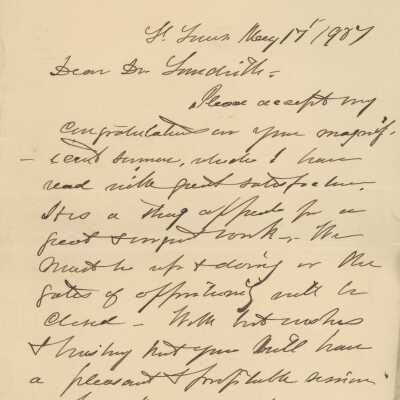 St. Louis May 17 1927
Dear Dr.
Please accept my
congratulations on your magnif-
icent sermon, which I have
read with great satisfaction.
It is a strong appeal for a
great & urgent work - We
must be up & doing or the
gates of opportunity will be
closed - With best wishes
& trusting that you will have
a pleasant & profitable session